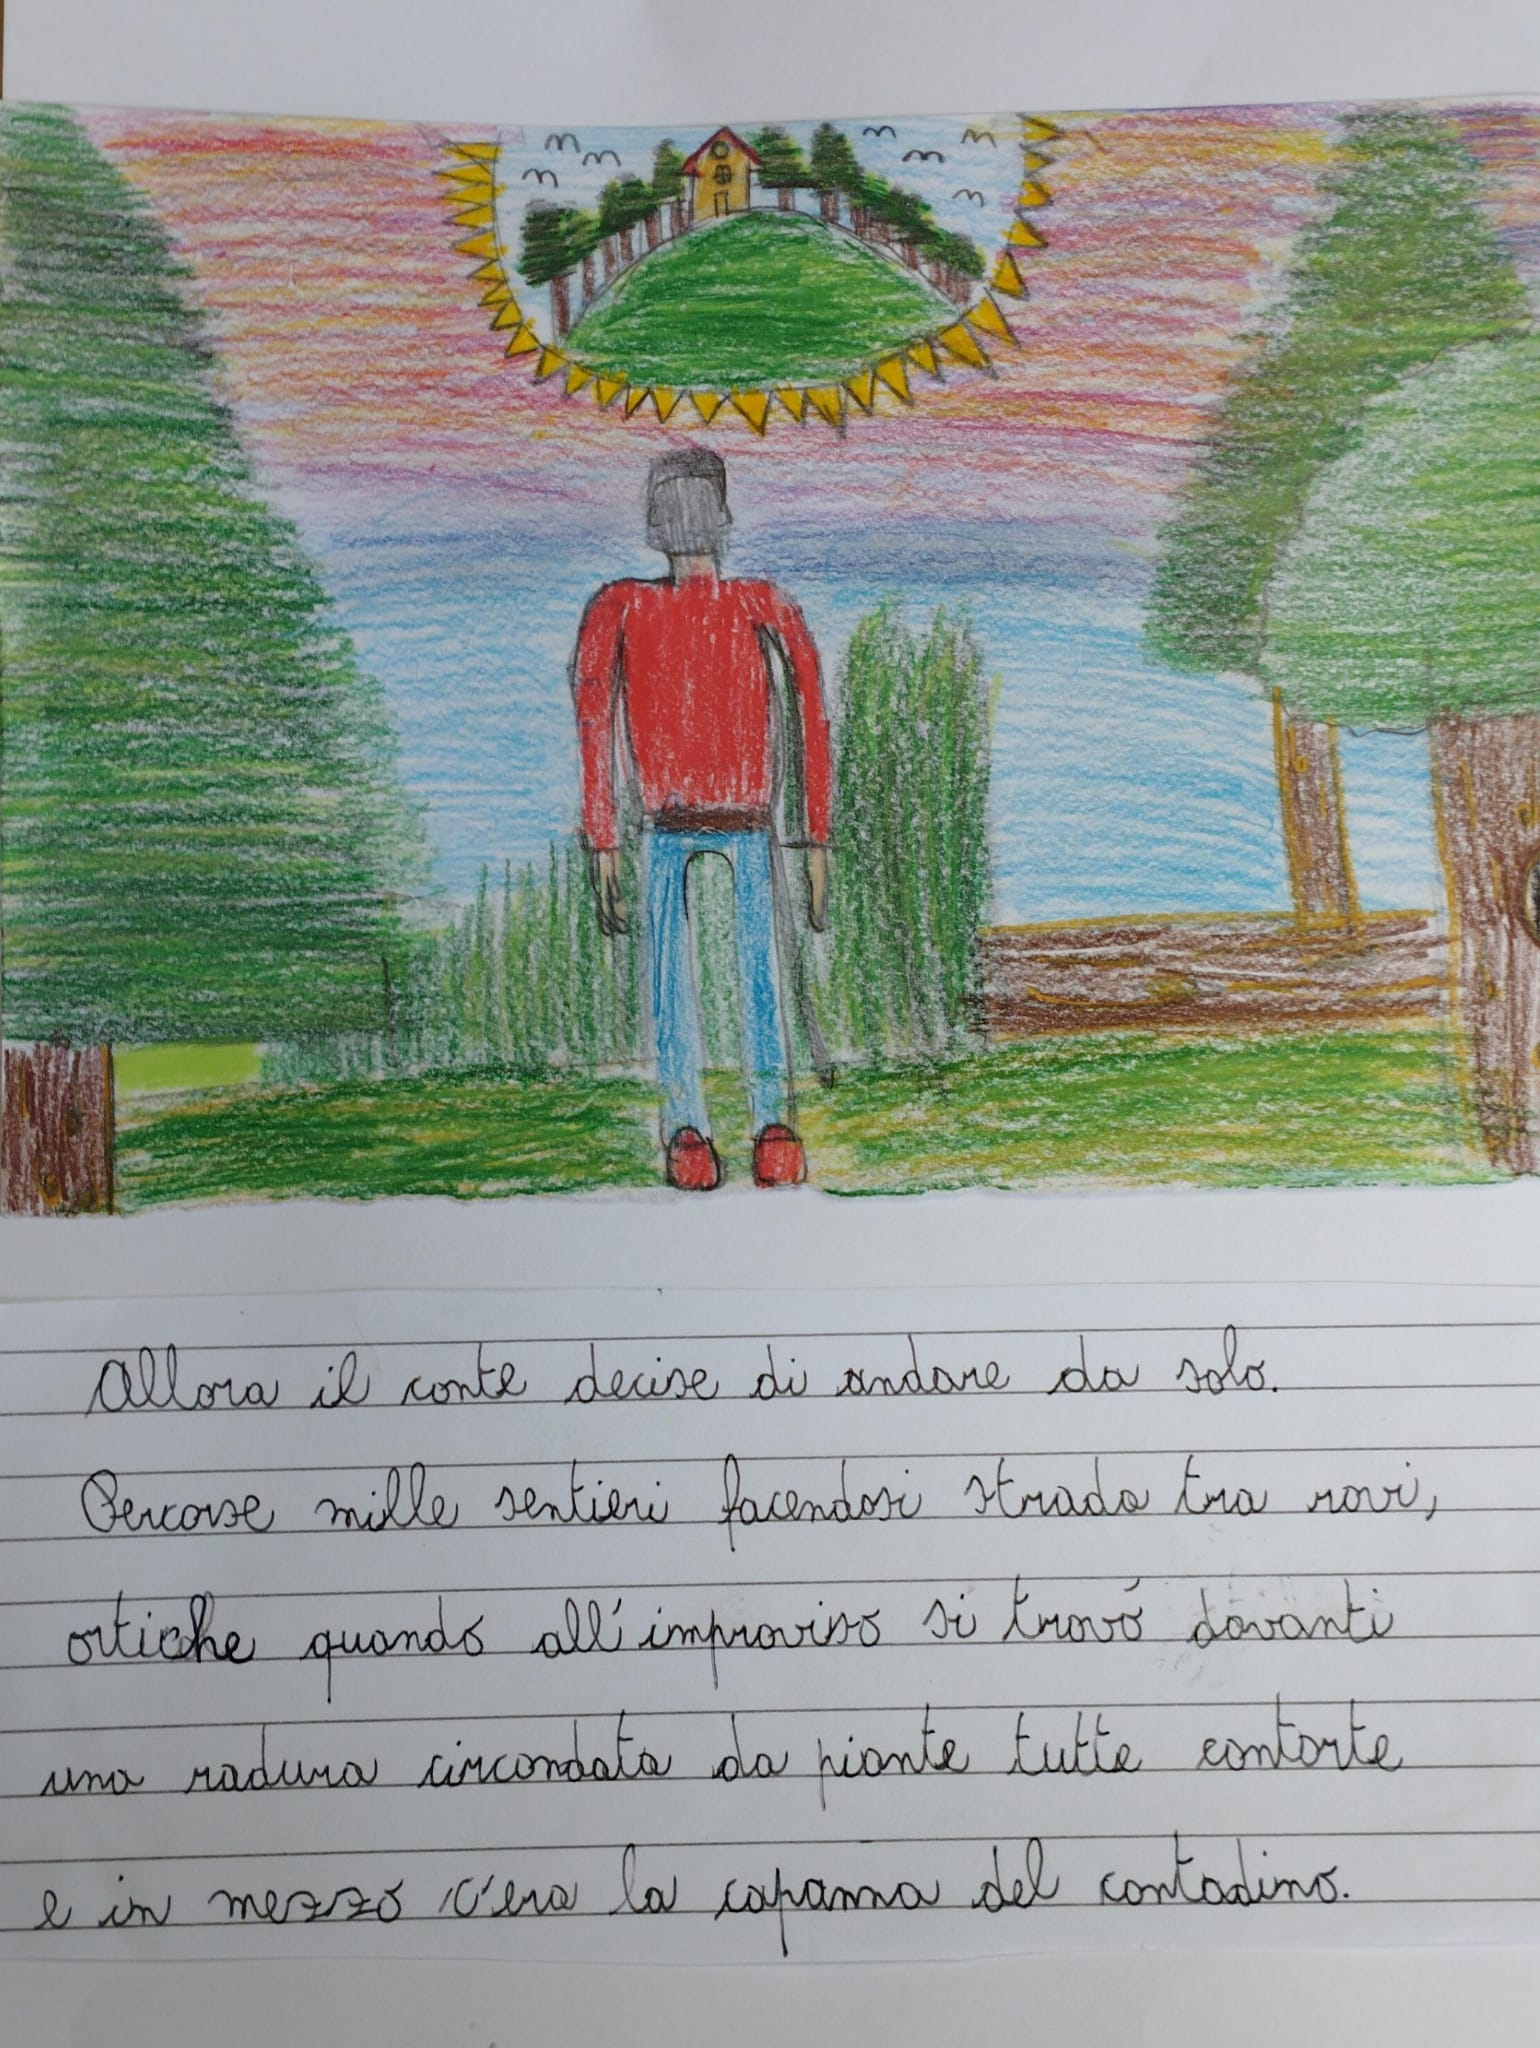 Allora il conte decise di andare da solo.
Percorse mille sentieri facendosi strada tra rovi,
ortiche quando all'improviso si trovó davanti
una radura circondata da piante tutte contorte
e in mezzo c'era la capanna del contadino.